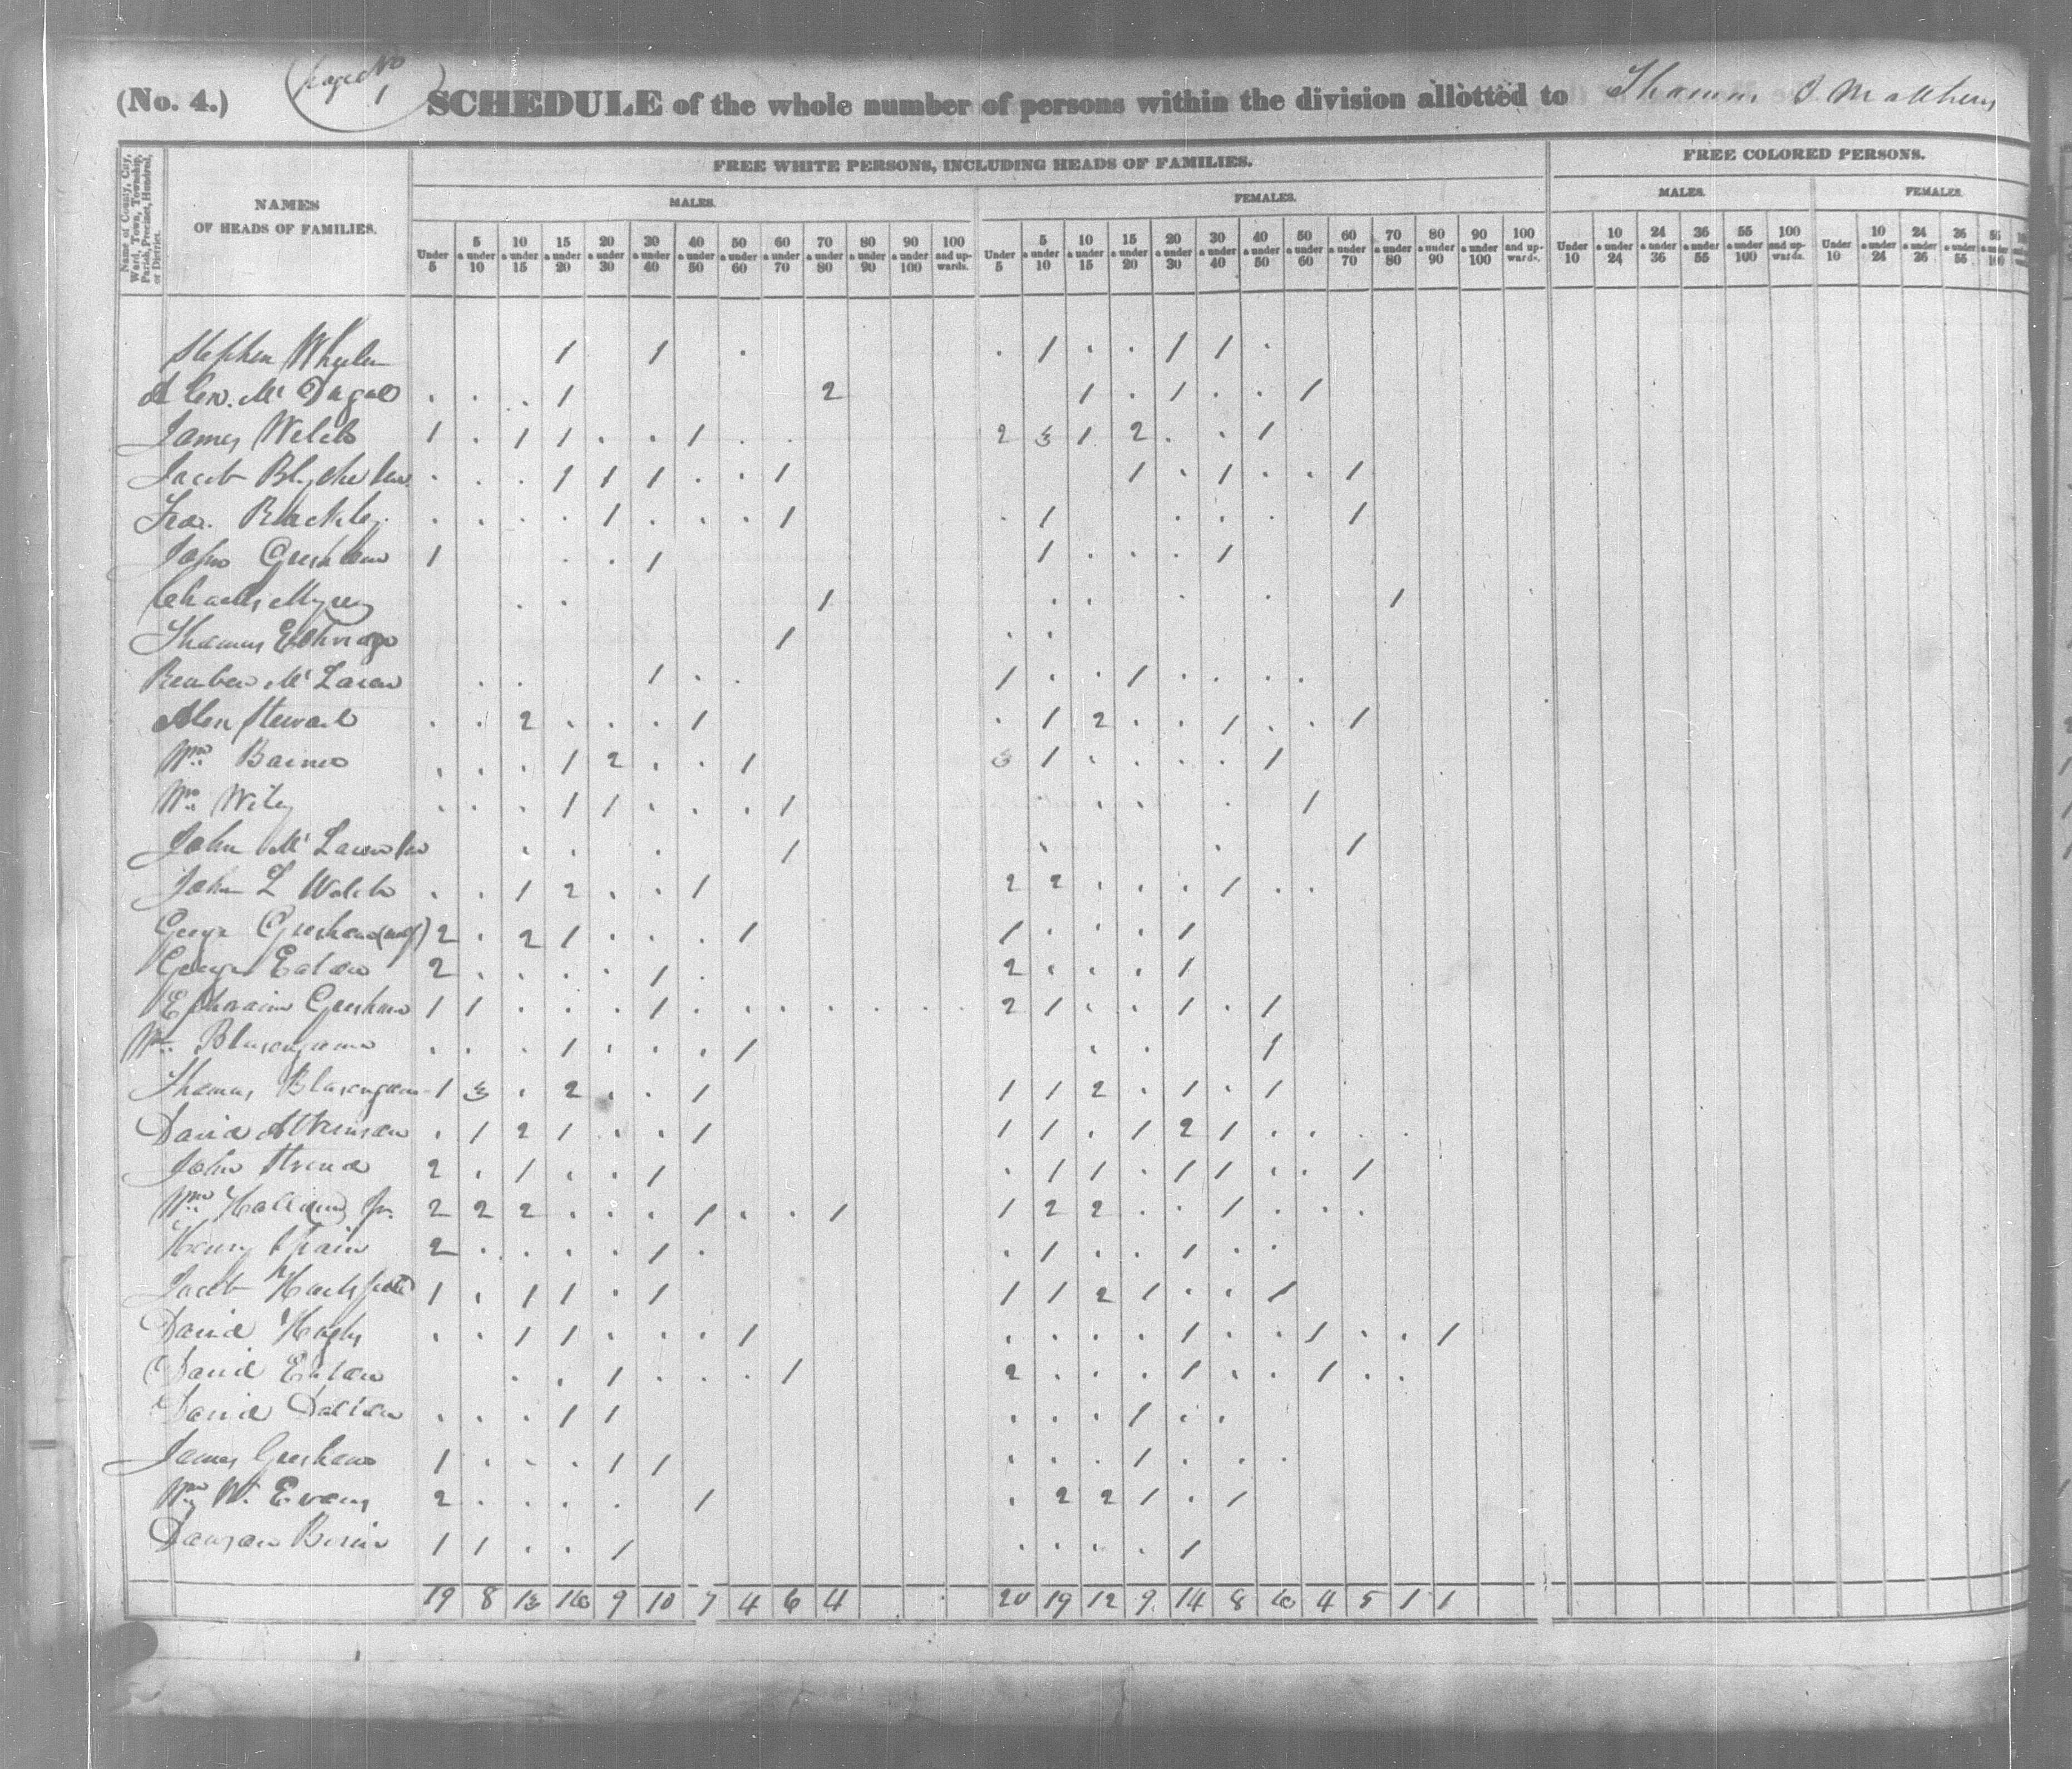 (No. 4.) page No 1 SCHEDULE of the whole number of persons within the division allotted to Thomas J Mathews
Name of County, City, Ward, Town, Township, Parish, Precinct, Hundred, or District.
NAMES OF HEADS OF FAMILIES.
FREE WHITE PERSONS, INCLUDING HEADS OF FAMILIES.
FREE COLORED PERSONS.
MALES. FEMALES. MALES. FEMALES.
Under 5 5 & under 10 10 & under 15 15 & under 20 20 & under 30 30 & under 40 40 & under 50 50 & under 60 60 & under 70 70 & under 80 80 & under 90 90 & under 100 100 and upwards.
Under 5 5 & under 10 10 & under 15 15 & under 20 20 & under 30 30 & under 40 40 & under 50 50 & under 60 60 & under 70 70 & under 80 80 & under 90 90 & under 100 100 and upwards.
Under 10 10 & under 24 24 & under 36 36 & under 55 55 & under 100 100 and upwards.
Under 10 10 & under 24 24 & under 36 36 & under 55 55 & under 100
Stephen Wheeler 1 1 1 1 1
McDugal 1 2 1 1 1
James Welch 1 1 1 1 2 3 1 2 1
Jacob 1 1 1 1 1 1 1
Blackley 1 1 1 1
John Gresham 1 1 1 1
Charles Myrey 1 1
Thomas 1
Reuben McLaren 1 1 1
Alex Stewart 2 1 1 2 1 1
Wm Barnes 1 2 1 3 1 1
Wm Wiley 1 1 1 1
John 1 1
John L Welch 1 2 1 2 2 1
George Gresham 2 2 1 1 1 1
George Eaton 2 1 2 1
Ephraim Gresham 1 1 1 2 1 1 1
Wm Blasengame 1 1 1
Thomas Blasengame 1 3 2 1 1 1 2 1 1
David Atkinson 1 2 1 1 1 1 1 2 1
John 2 1 1 1 1 1 1 1
Wm Jr. 2 2 2 1 1 1 2 2 1
Henry Spain 2 1 1 1
Jacob 1 1 1 1 1 1 2 1 1
David 1 1 1 1 1 1
David Eaton 1 1 2 1 1
David Dalton 1 1 1
James Gresham 1 1 1 1
Wm W. Evans 2 1 2 2 1 1
1 1 1 1
19 8 13 16 9 10 7 4 6 4 20 19 12 9 14 8 6 4 5 1 1